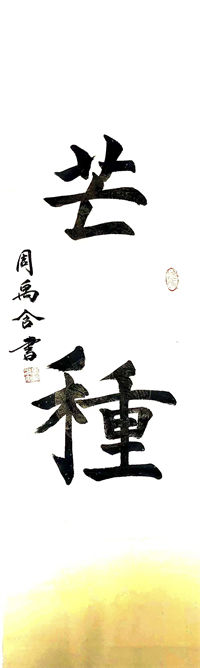 芒種
周禹含書